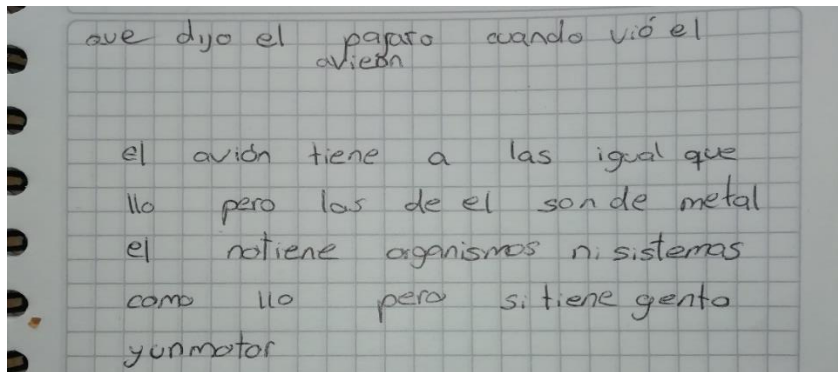 que dijo el pajaro cuando vió el
avieón
el avión tiene a las igual que
llo pero las de el son de metal
el notiene organismos ni sistemas
como llo pero si tiene gento
yunmotor